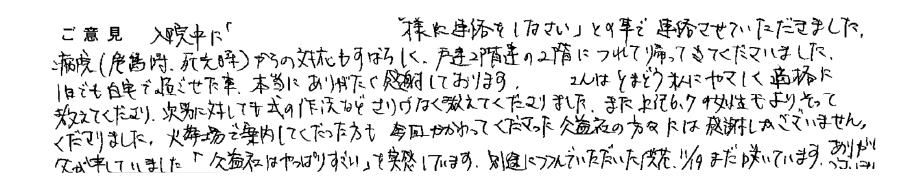 ご意見 入院中に「 様に連絡をしなさい」との事で連絡させていただきました。
病院(危篤時、死亡時)からの対応もすばらしく、戸建2階建の2階につれて帰ってきてくださいました。
1日でも自宅で過ごせた事、本当にありがたく感謝しております。 さんはとまどう私にヤサしく適格に
教えてくださり、次男に対しても式の作法などさりげなく教えてくださりました。また上記6,7 も よりそって
くださりました。火葬場で案内してくださった方も今回かかわってくださった公益社の方々には感謝しかございません。
父が申していました「公益社はやっぱりすごい」を実感しています。別途につつんでいただいた供花、11/9まだ咲いています。ありがとう